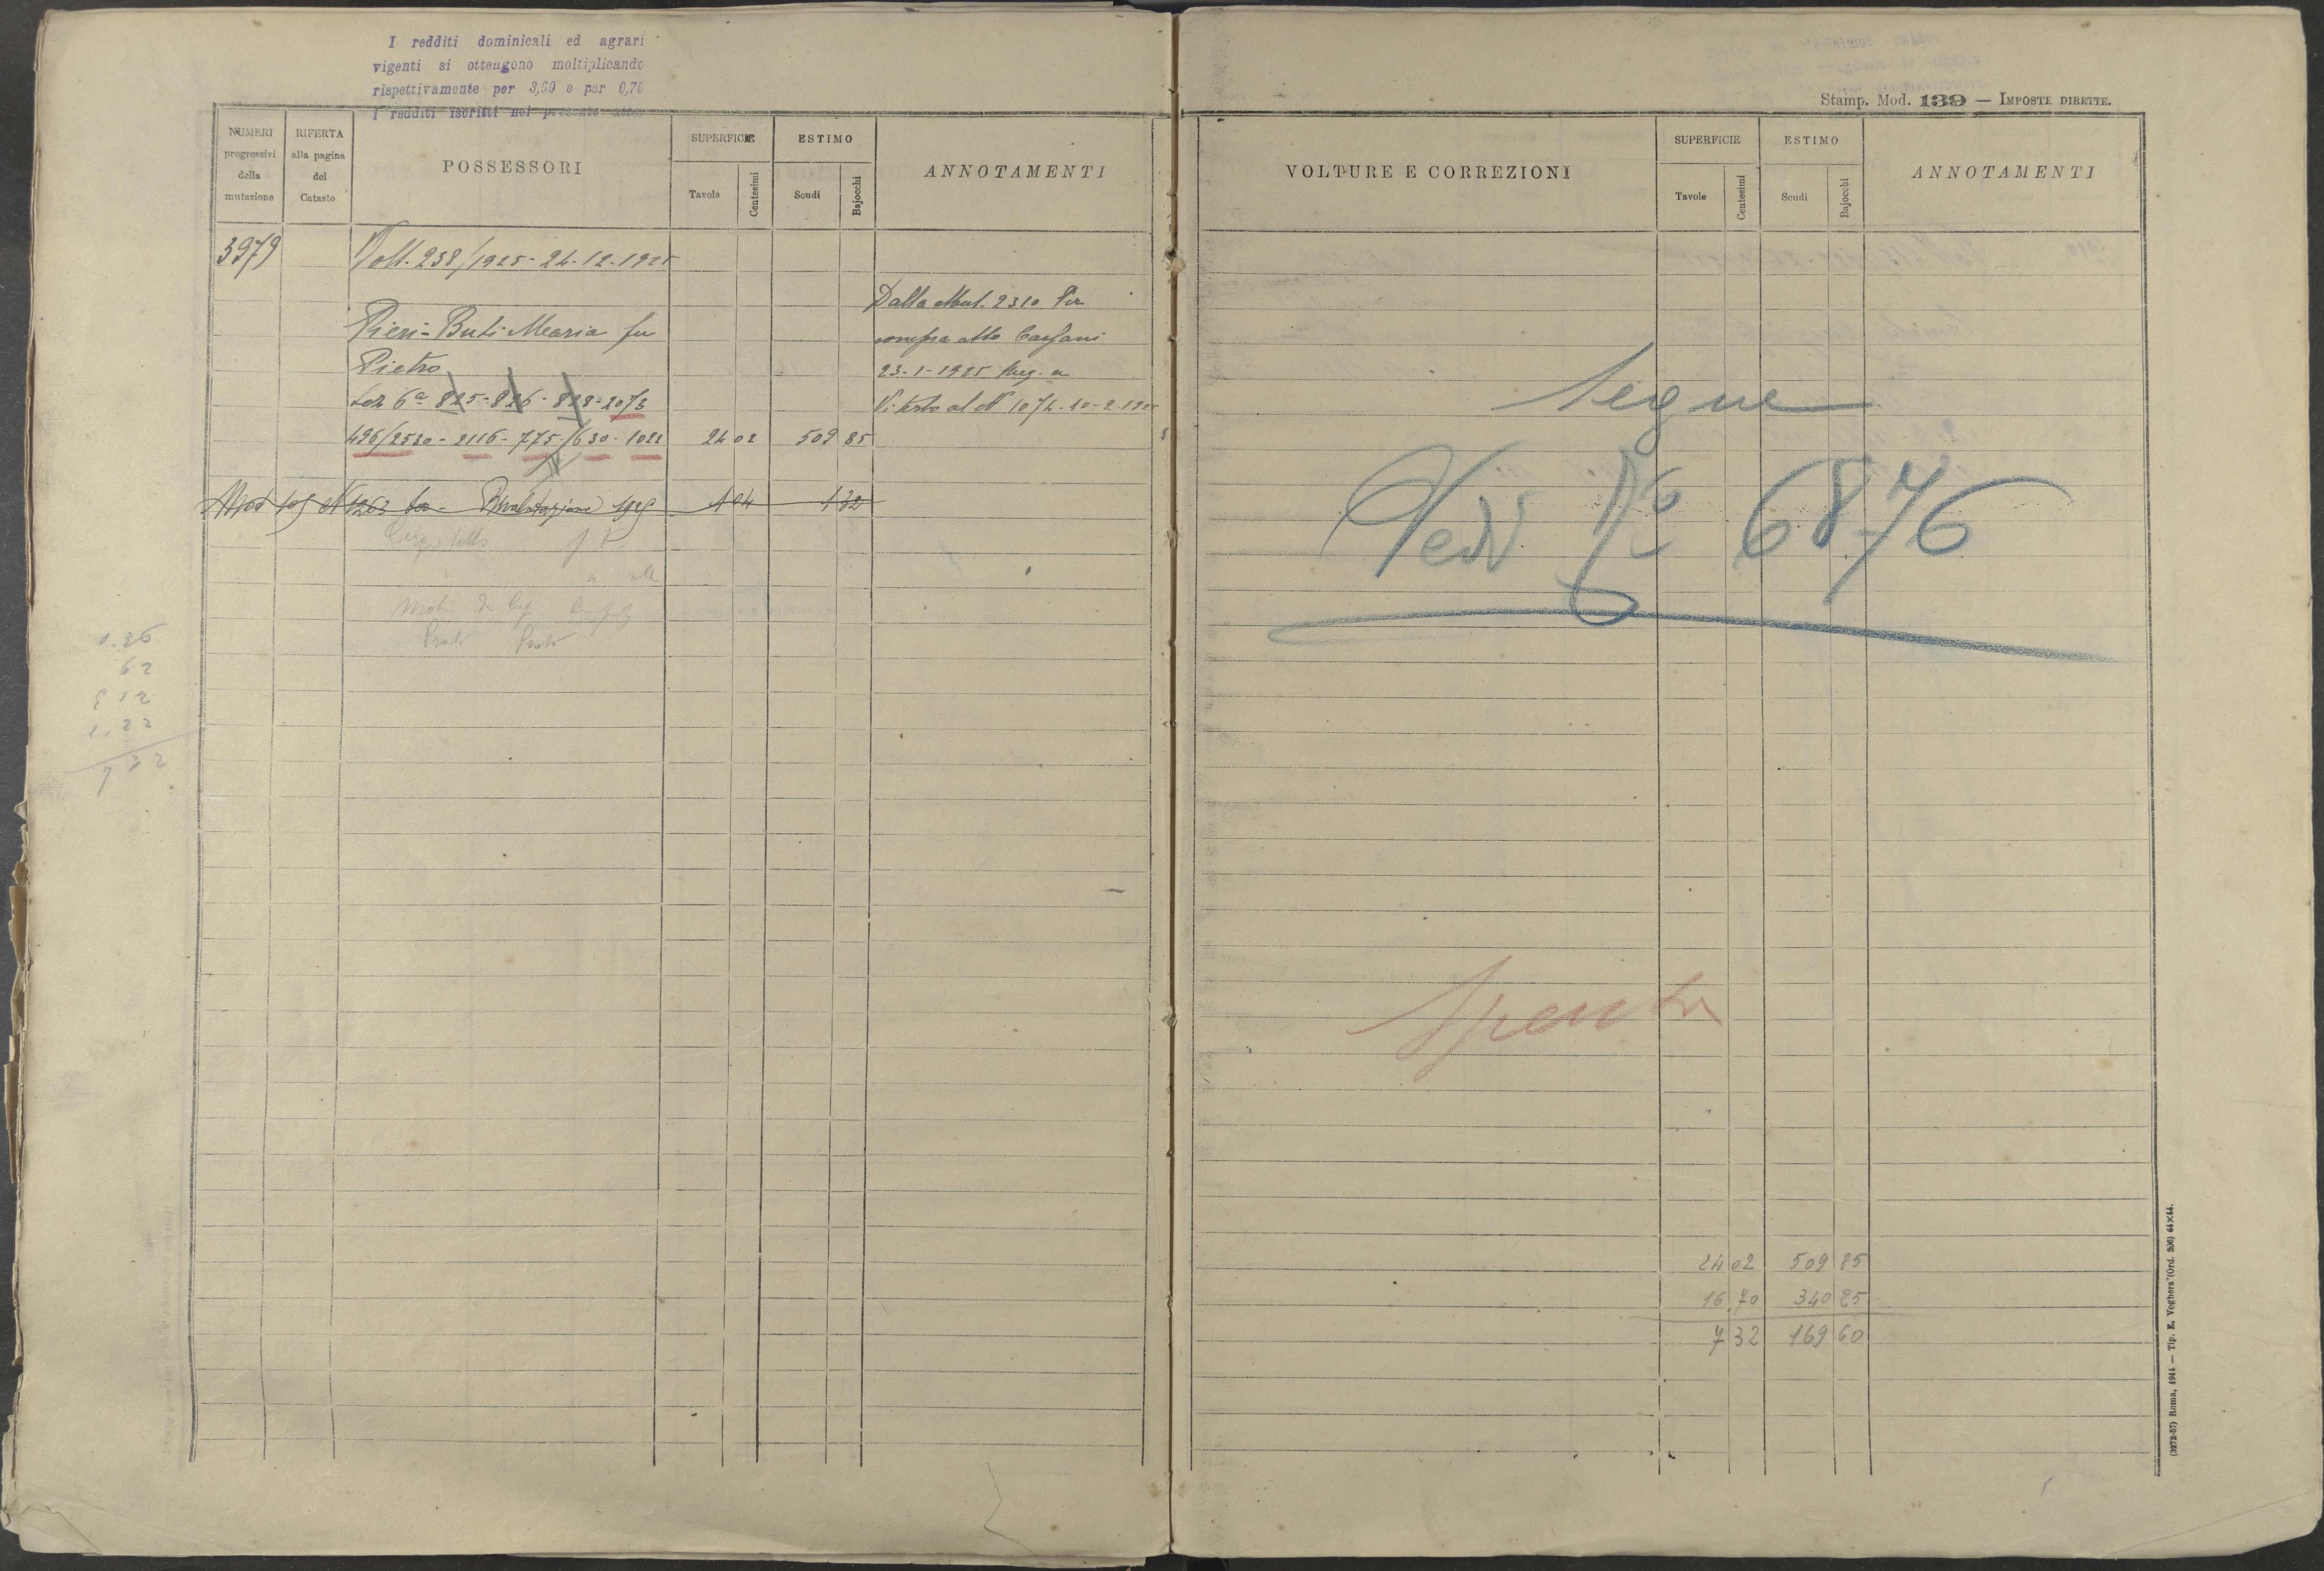 I redditi dominicali ed agrari
vigenti si ottengono moltiplicando
rispettivamente per 3,60 e per 0,76
I redditi iscritti nel presente atto
Stamp. Mod. 139 — IMPOSTE DIRETTE.
NUMERI progressivi della mutazione
RIFERTA alla pagina del Catasto
POSSESSORI
SUPERFICIE
Tavole
Centesimi
ESTIMO
Scudi
Bajocchi
ANNOTAMENTI
VOLTURE E CORREZIONI
SUPERFICIE
Tavole
Centesimi
ESTIMO
Scudi
Bajocchi
ANNOTAMENTI
3979
Volt. 238/1925 - 24-12-1925
Pieri-Buti Maria fu
Pietro
Sez 6ª 825-826-828-2073
496/2530-2116-775-/630-1022 24 02 509 85
Dalla Mut. 2310 Per
compra atto
23-1-1925 Reg. a
Viterbo al N 1074-10-2-
N 1263 Rivalutazione 1 04 1 32
Prato Prato
0.36
62
5 12
1.22
7 32
Segue
Vedi 6876
Spenta
24 02 509 85
16 70 340 25
7 32 169 60
(3272-57) Roma, 1914 — Tip. E. Voghera (Ord. 206) 64×44.